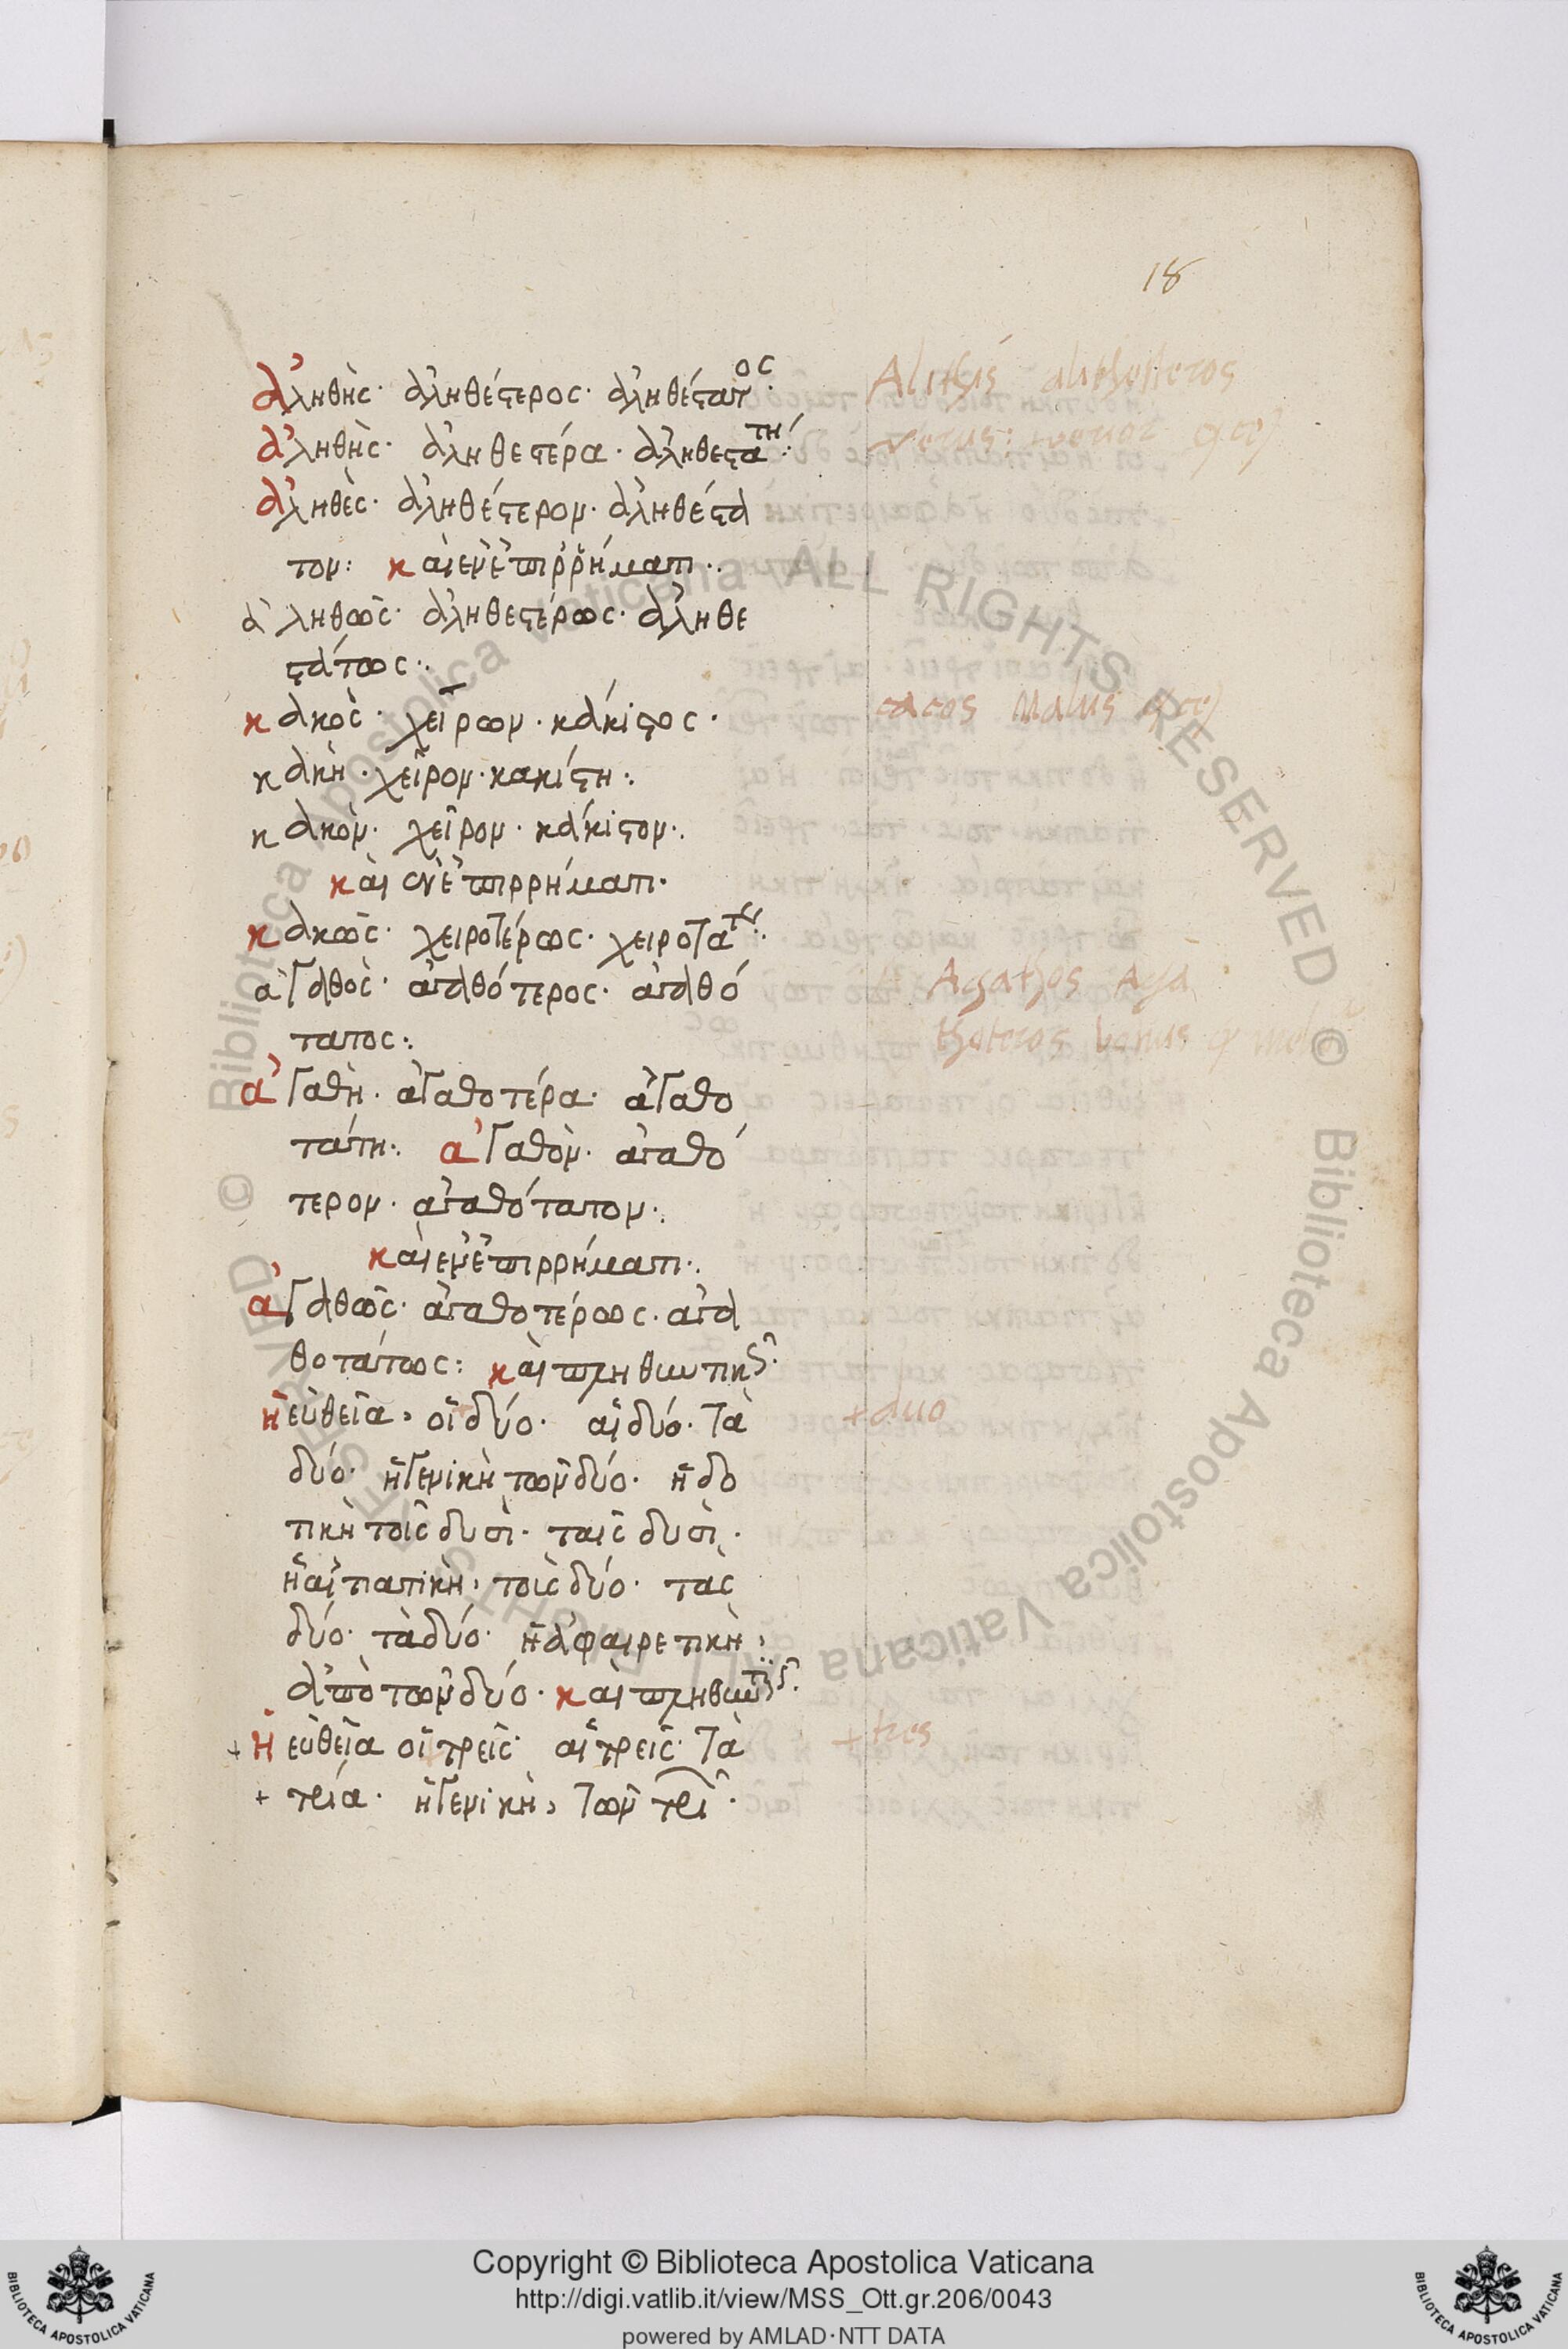 18
ἀληθὴς· ἀληθέςερος· ἀληθέςατος·
ἀληθὴς· ἀληθεςέρα· ἀληθεςάτη:
ἀληθὲς· ἀληθέςερον· ἀληθέςα
τον: καὶ ἐν ἐπιρρήματι:
ἀληθῶς· ἀληθεςέρως· ἀληθε
ςάτως:
κακὸς· χείρων· κάκιςος·
κακὴ· χεῖρον· κακίςη:
κακὸν· χεῖρον· κάκιςον:
καὶ ἐν ἐπιρρήματι·
κακῶς· χειροτέρως· χειροτάτως:
ἀγαθὸς· ἀγαθότερος· ἀγαθό
τατος:
ἀγαθὴ· ἀγαθοτέρα· ἀγαθο
τάτη: ἀγαθὸν· ἀγαθό
τερον· ἀγαθότατον:
καὶ ἐν ἐπιρρήματι:
ἀγαθῶς· ἀγαθοτέρως· ἀγα
θοτάτως: καὶ πληθυντικῶς·
ἡ εὐθεῖα, οἱ δύο· αἱ δύο· τὰ
δύο· ἡ γενικὴ τῶν δύο· ἡ δο
τικὴ τοῖς δυσὶ· ταῖς δυσὶ·
ἡ αἰτιατικὴ, τοὶς δύο· τὰς
δύο· τὰ δύο· ἡ ἀφαιρετικὴ,
ἀπὸ τῶν δύο· καὶ πληθυντικῶς·
+ ἡ εὐθεῖα οἱ τρεῖς· αἱ τρεῖς· τὰ
+ τρία· ἡ γενικὴ, τῶν τρι·
Alithis alithesteros
verus:
cacos Malus
Agathos Aga
thoteros bonus
+ duo
+ tres
Copyright © Biblioteca Apostolica Vaticana
http://digi.vatlib.it/view/MSS_Ott.gr.206/0043
powered by AMLAD·NTT DATA
BIBLIOTECA APOSTOLICA VATICANA
BIBLIOTECA APOSTOLICA VATICANA
© Biblioteca Apostolica Vaticana ALL RIGHTS RESERVED
© Biblioteca Apostolica Vaticana ALL RIGHTS RESERVED